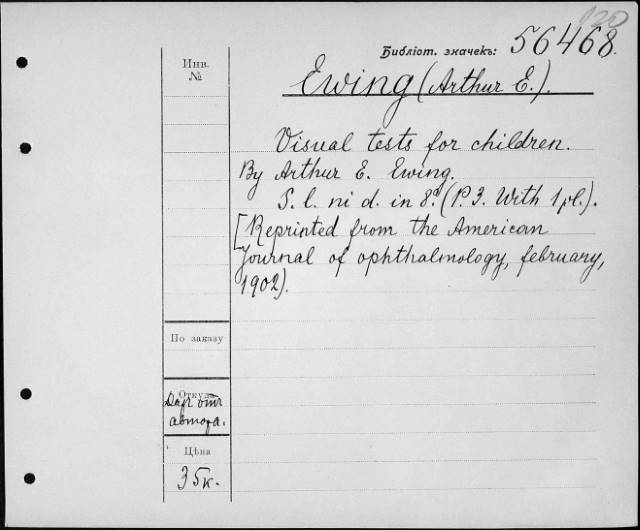 120
Библіот. значекъ: 56468.
Инв.
№
Ewing (Arthur E.).
Visual tests for children.
By Arthur E. Ewing.
S. l. ni d. in 8º. (P. 3. With 1 pl.).
[Reprinted from the American
Journal of ophthalmology, february,
1902).
По заказу
Откуда
Даръ отъ
автора.
Цѣна
35к.